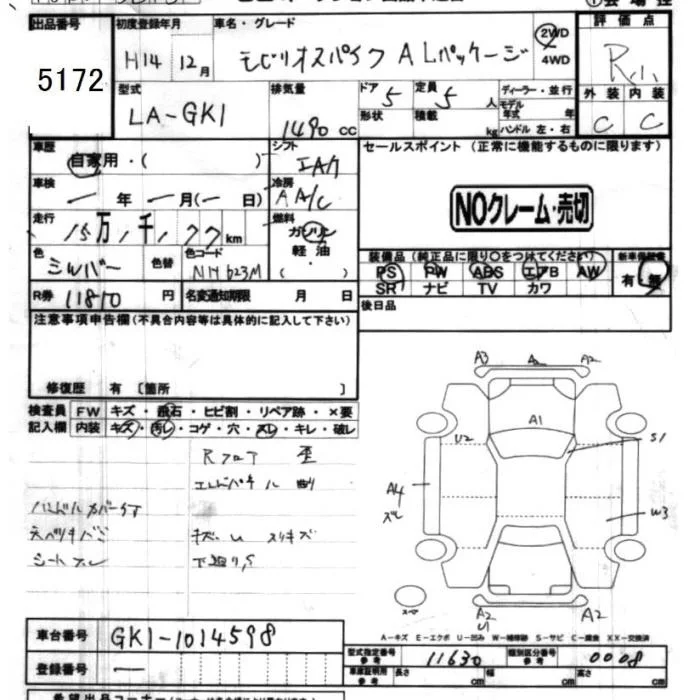 出品番号
5172
初度登録年月
H14 12月
車名・グレード
モビリオスパイク ALパッケージ
2WD
4WD
評価点
R
外装 内装
C C
型式
LA-GK1
排気量
1490 cc
ドア
5
形状
定員
5 人
積載
kg
ディーラー・並行
モデル
年式 年
ハンドル 左・右
車歴
自家用・( )
シフト
車検
年 月( 日)
冷房
A A/C
走行
15万 1千 177 km
燃料
ガソリン
軽油
( )
色
シルバー
色替
色コード
NH623M
R券
11810 円
名変通知期限 月 日
セールスポイント (正常に機能するものに限ります)
NOクレーム・売切
装備品(純正品に限り○をつけてください)
PS PW ABS エアB AW
SR ナビ TV カワ
新車保証書
有 無
後日品
注意事項申告欄(不具合内容等は具体的に記入して下さい)
修復歴 有 〔箇所 〕
検査員
記入欄
FW キズ・飛石・ヒビ割・リペア跡・×要
内装 キズ・汚レ・コゲ・穴・スレ・キレ・破レ
Rフロア 歪
ハンドルカバー
シートスレ
下廻りS
A3 A2 A2
A1
U2
S1
A4
スレ
W3
スペア
A2
U1
A2
A-キズ E-エクボ U-凹み W-補修跡 S-サビ C-腐食 XX-交換済
車台番号
GK1-1014598
登録番号
型式指定番号
参考
11630
類別区分番号
参考
0008
車庫証明用
参考
長さ cm
幅 cm
高さ cm